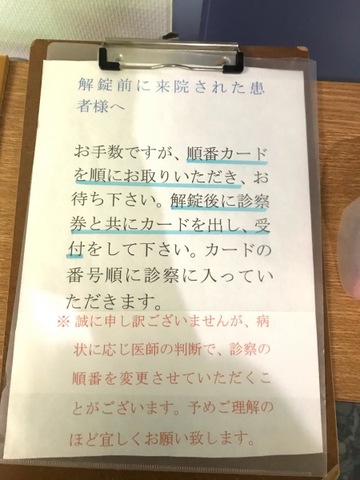 解錠前に来院された患
者様へ
お手数ですが、順番カード
を順にお取りいただき、お
待ち下さい。解錠後に診察
券と共にカードを出し、受
付をして下さい。カードの
番号順に診察に入ってい
ただきます。
※誠に申し訳ございませんが、病
状に応じ医師の判断で、診察の
順番を変更させていただくこ
とがございます。予めご理解の
ほど宜しくお願い致します。